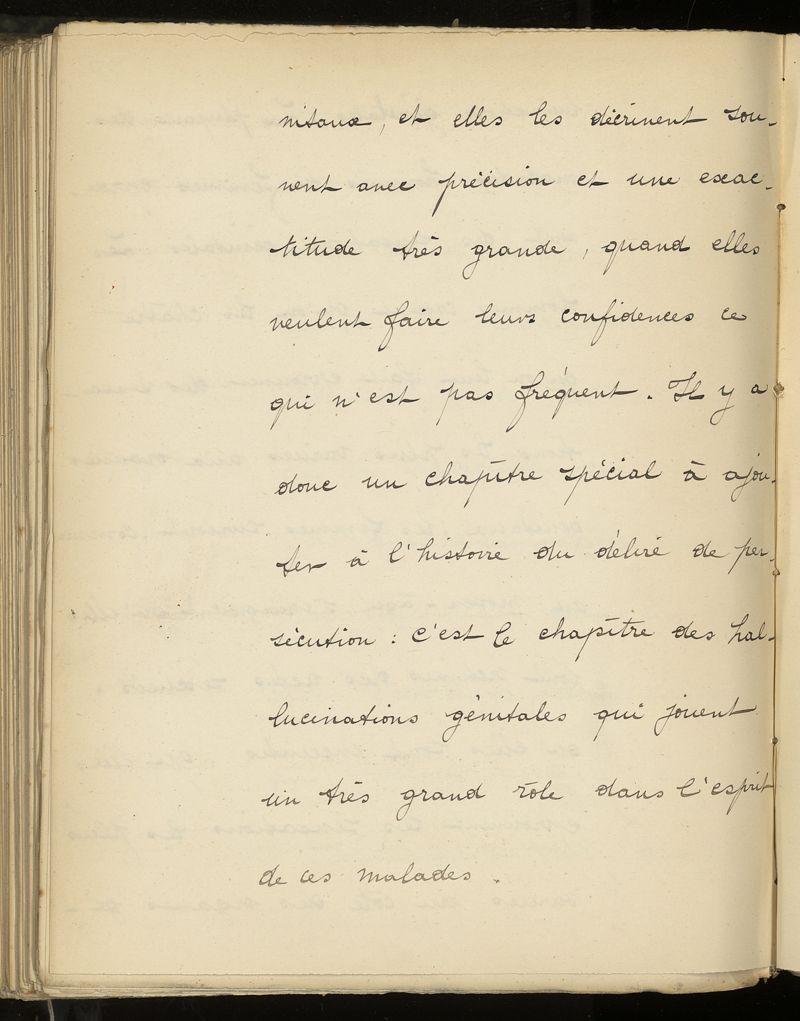 nitaux, et elles les décrivent sou-
vent avec précision et une exac-
titude très grande, quand elles
veulent faire leurs confidences ce
qui n'est pas fréquent. Il y a
donc un chapitre spécial à ajou-
ter à l'histoire du délire de per-
sécution : c'est le chapitre des hal-
lucinations génitales qui jouent
un très grand rôle dans l'esprit
de ces malades.